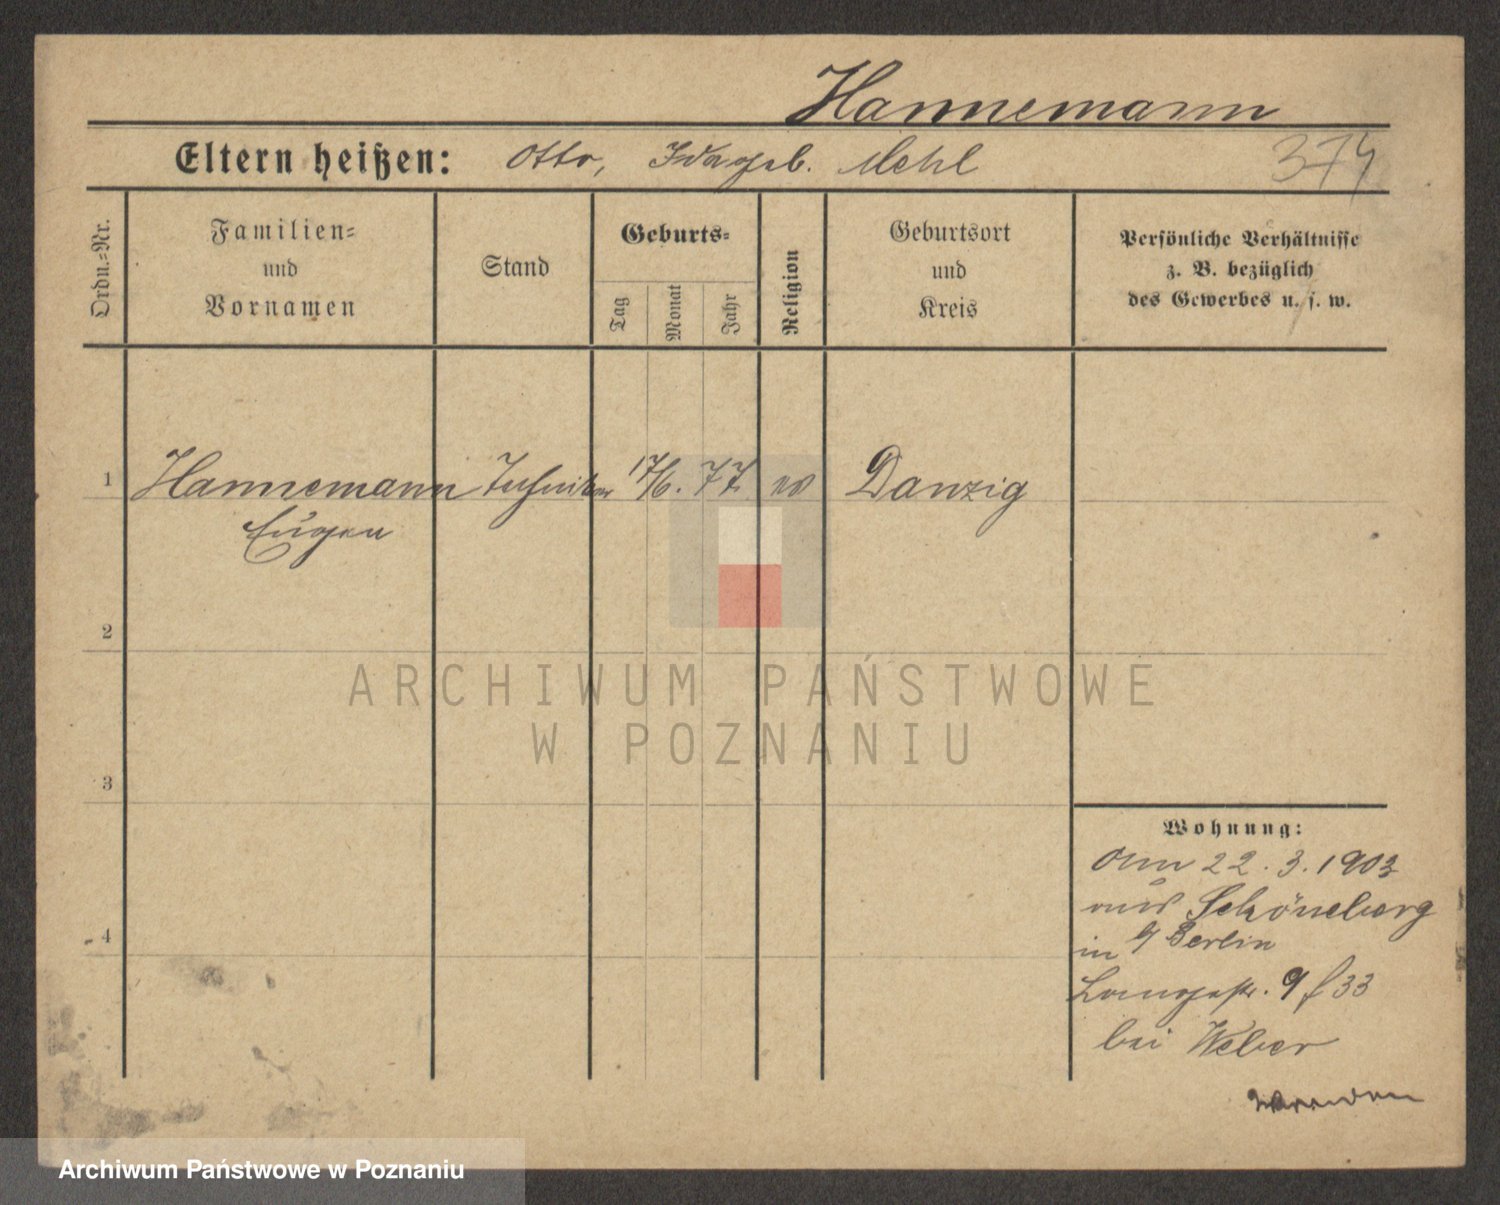 Hannemann
Eltern heißen: Otto, Ida geb. Mehl
374
Ordn.=Nr.
Familien=
und
Vornamen
Stand
Geburts=
Tag
Monat
Jahr
Religion
Geburtsort
und
Kreis
Persönliche Verhältnisse
z. B. bezüglich
des Gewerbes u. s. w.
1 Hannemann Techniker 17/6. 77 Danzig
Eugen
2
3
4
Wohnung:
Am 22. 3. 1903
aus Schöneberg
in b/ Berlin
Langestr. 9 f 33
bei Weber
ARCHIWUM PAŃSTWOWE
W POZNANIU
Archiwum Państwowe w Poznaniu